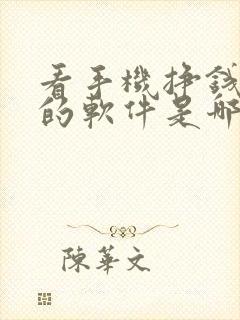 看手機挣錢
的軟件是哪
陳華文